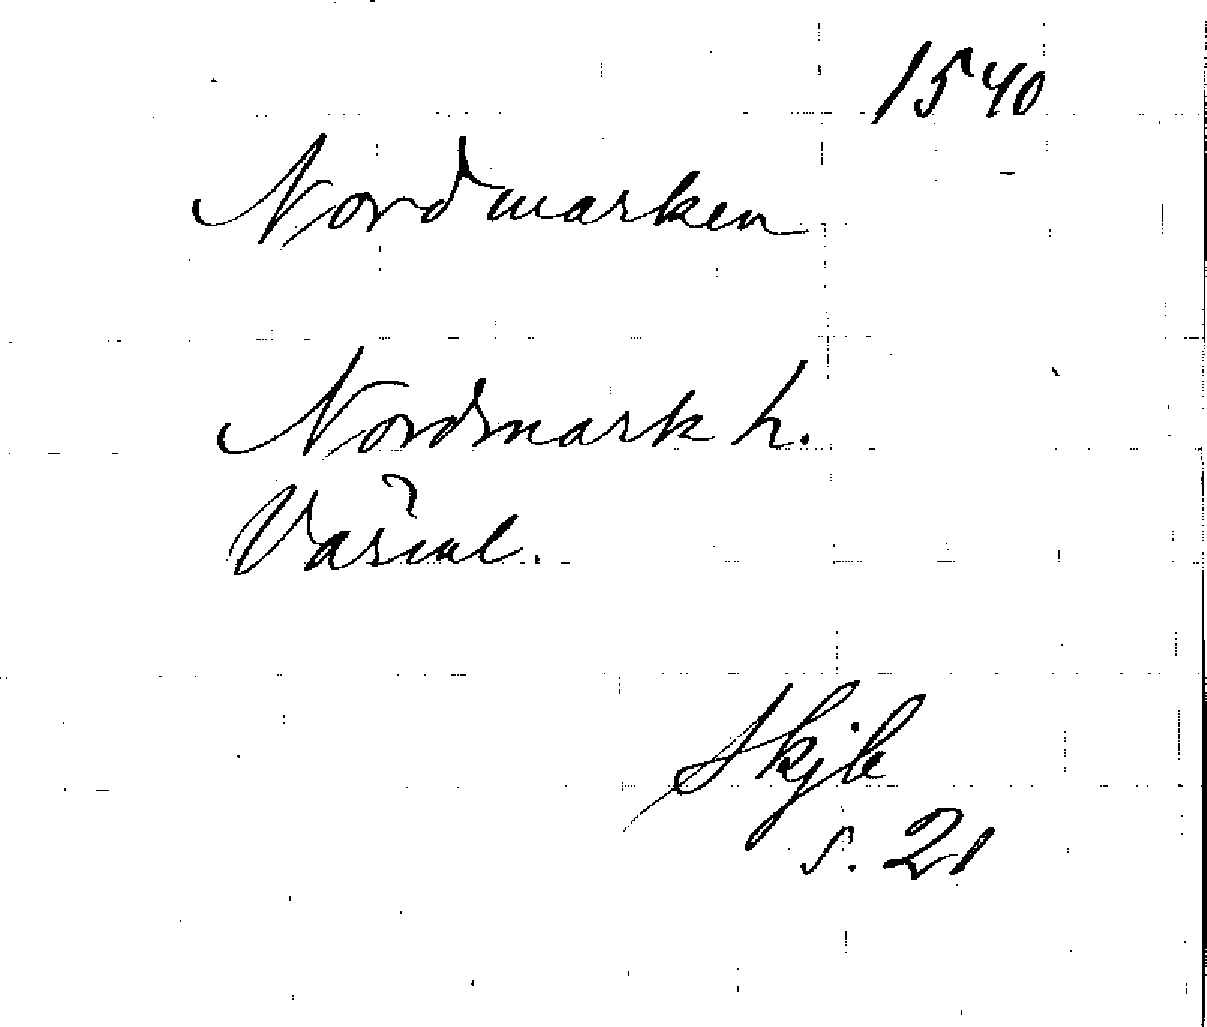 1540
Nordmarken
Nordmark h.
Värml.
Skjb
s. 21